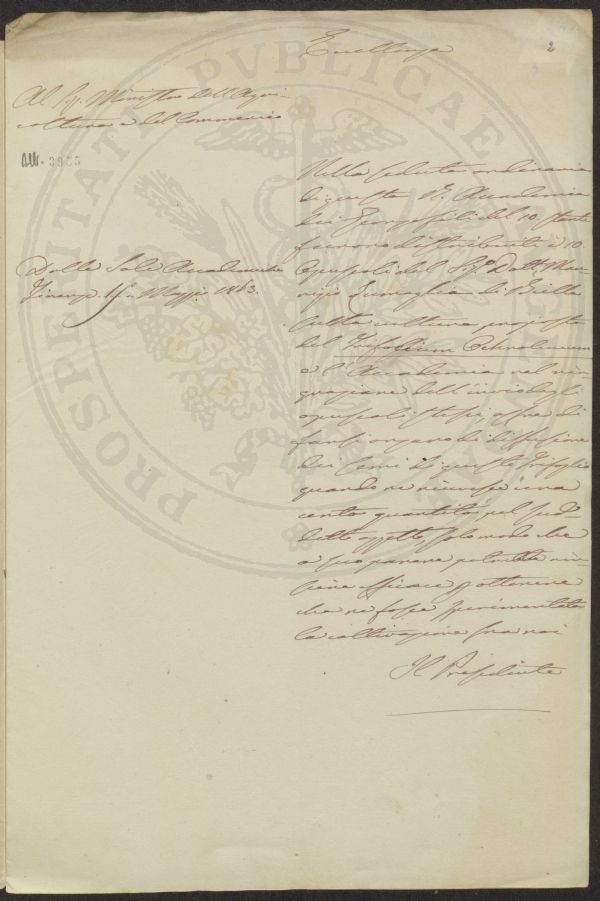 Eccellenza
2
Al Sig. Ministro dell'Agri-
coltura e del Commercio
All. 3955
Dalle Sale Accademiche
Firenze 15. Maggio 1863.
Nella seduta ordinaria
di questa R. Accademia
dei Georgofili del 10 stante
furono distribuiti i 10
Opuscoli del Sig. Dott. Mau-
rizio Zumaglia di Biella
sulla coltura proposta
del Trifolium Ochroleucum
e l'Accademia nel rin-
graziare dell'invio degli
opuscoli stessi, offre di
farsi organo di diffusione
dei semi di questo Trifoglio
quando ne ricevesse una
certa quantità pel sud-
detto oggetto, solo modo che
a suo parere potrebbe riu-
scire efficace p. ottenere
che ne fosse sperimentata
la coltivazione fra noi
Il Presidente
PROSPERITATI PVBLICAE AVGENDAE